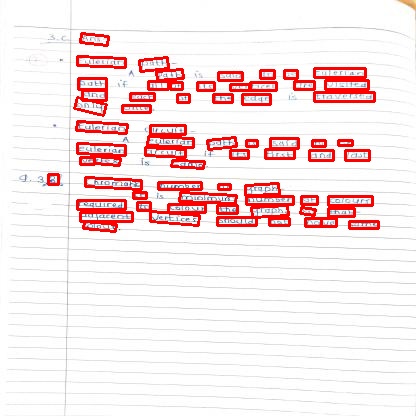 3.C Ans:
Eulerian path -
A path is said to be Eulerian
path if all the vertices are visited
and each of the edge is travelled
only once
Eulerian circuit -
A Eulerian path is said to be
Eulerian circuit if its first and last
vertex is same.
Q.3.
Chromatic number of graph
It is minimum number of colours
required to colour the graph so that
adjacent vertices should not have same
colour